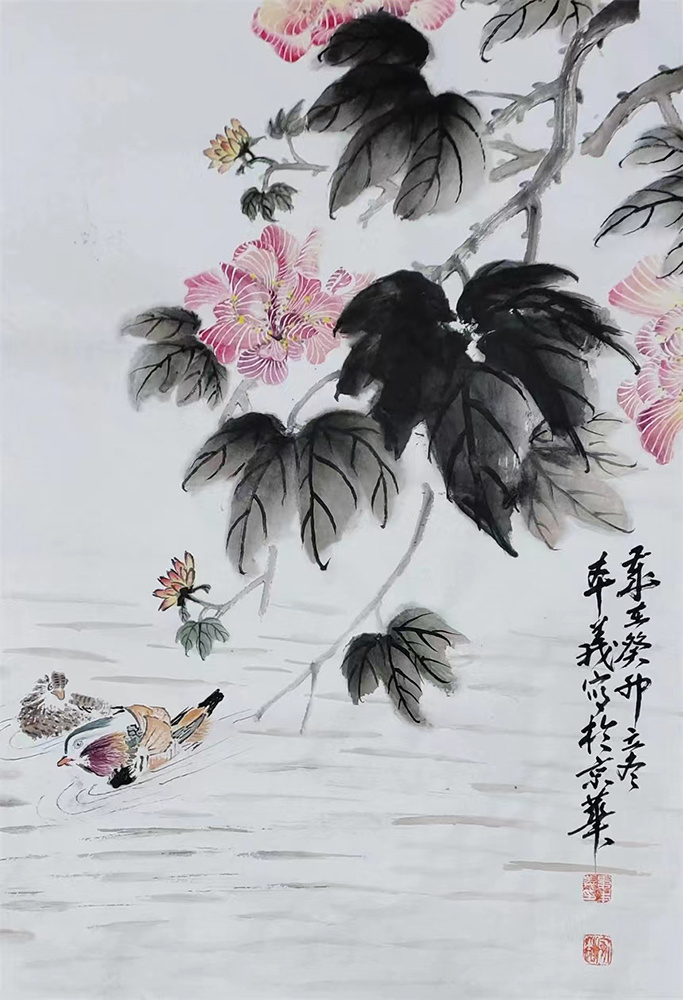 歲在癸卯立冬
義寫於京華